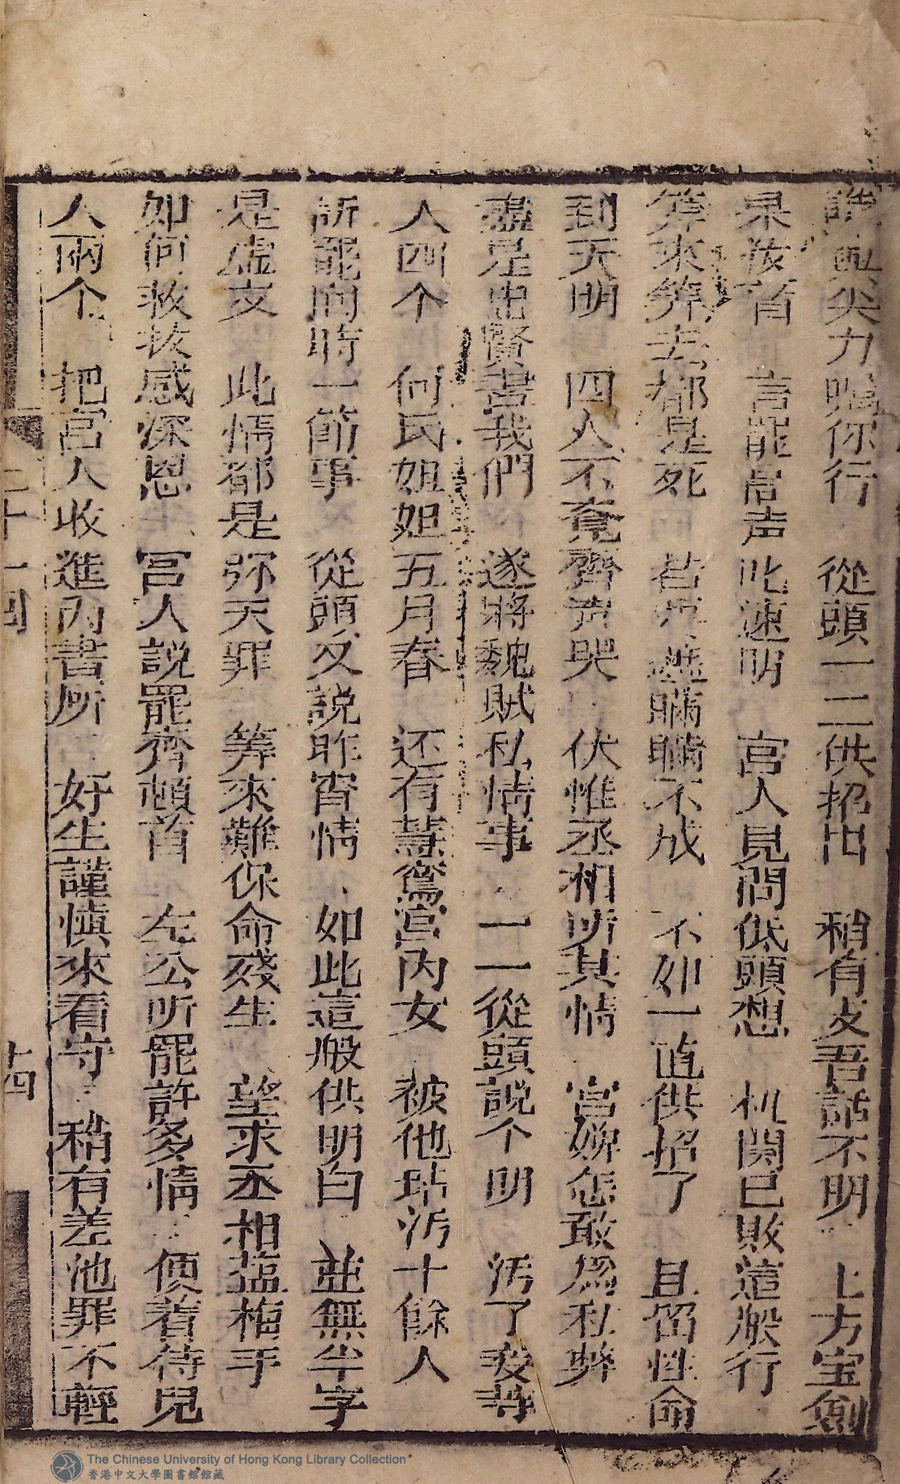 尖刀賜你行 從頭一二供招出 稍有支吾話不明 上方宝劍
果梟首 言罷高声此速明 宮人見問低頭想 机関已敗這般行
筭來筭去都是死 瞞瞞不成 不如一值供招了 且留性命
到天明 四人不覔齊声哭 伏惟丞相听其情 宮婢怎敢為私弊
盡是忠賢害我們 遂將魏賊私情事 一一從頭說个明 汚了我等
人四个 何氏姐妲五月春 还有慧鸞宮內女 被他玷汚十餘人
訴罷向時一節事 從頭又説昨宵情 如此這般供明白 並無半字
是虛文 此情都是弥天罪 筭來難保命殘生 望求丞相藴梅手
如何救抜感深恩 宮人説罷齊頓首 左公听罷許多情 便着待兒
人兩个 把宮人收進內書所 好生謹慎來看守 稍有差池罪不輕
二十一回
十四
The Chinese University of Hong Kong Library Collection
香港中文大學圖書館館藏